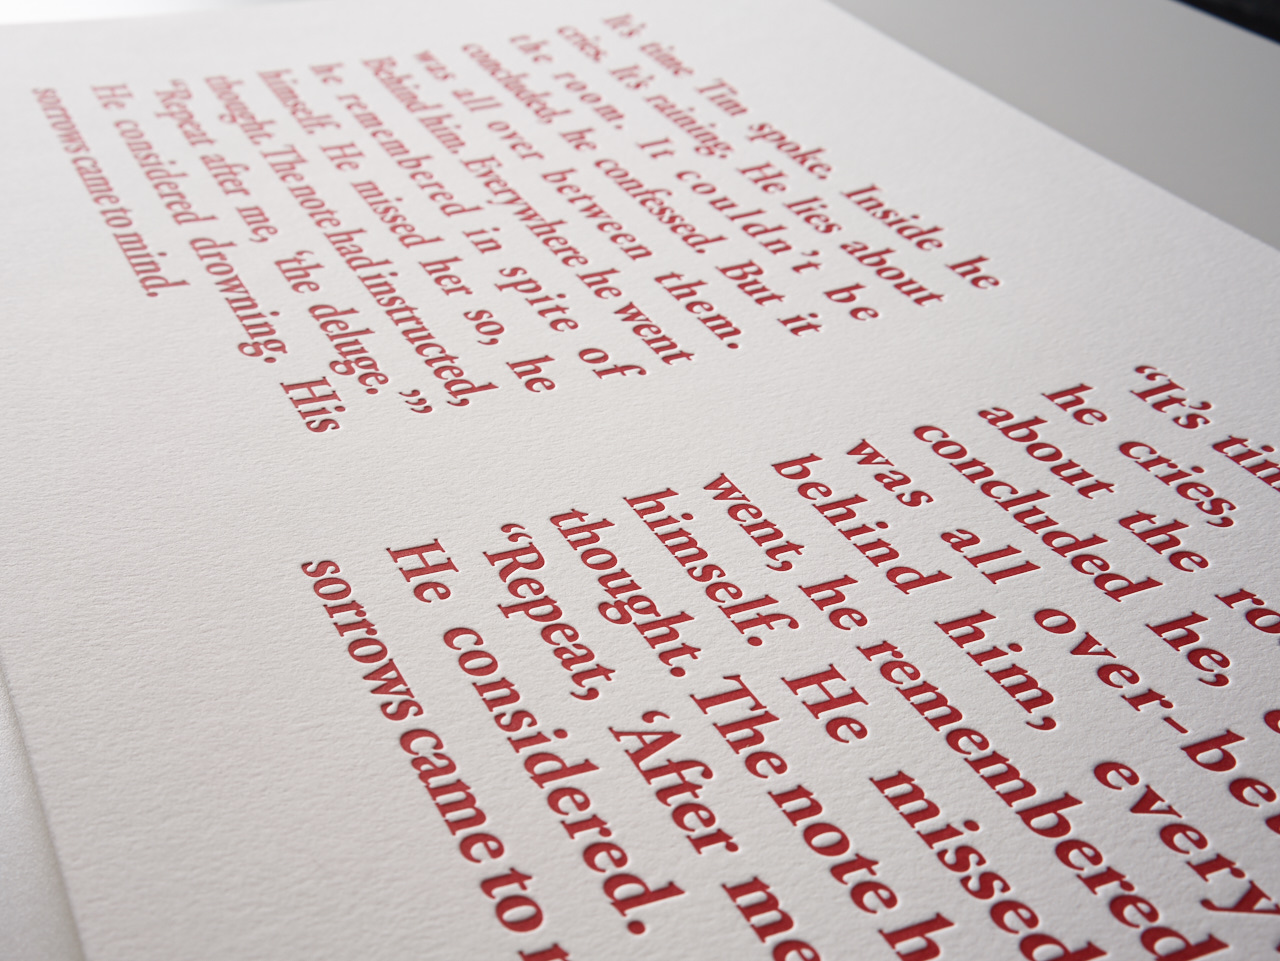 It's time Tim spoke. Inside he
cries. It's raining. He lies about
the room. It couldn't be
concluded, he confessed. But it
was all over between them.
Behind him. Everywhere he went
he remembered in spite of
himself. He missed her so, he
thought. The note had instructed,
“Repeat after me, ‘the deluge.’”
He considered drowning. His
sorrows came to mind.
“It's
he cries,
about the
concluded he,
was all over-
behind him, every
went, he remembered
himself. He missed
thought. The note
“Repeat, ‘After me
He considered.
sorrows came to